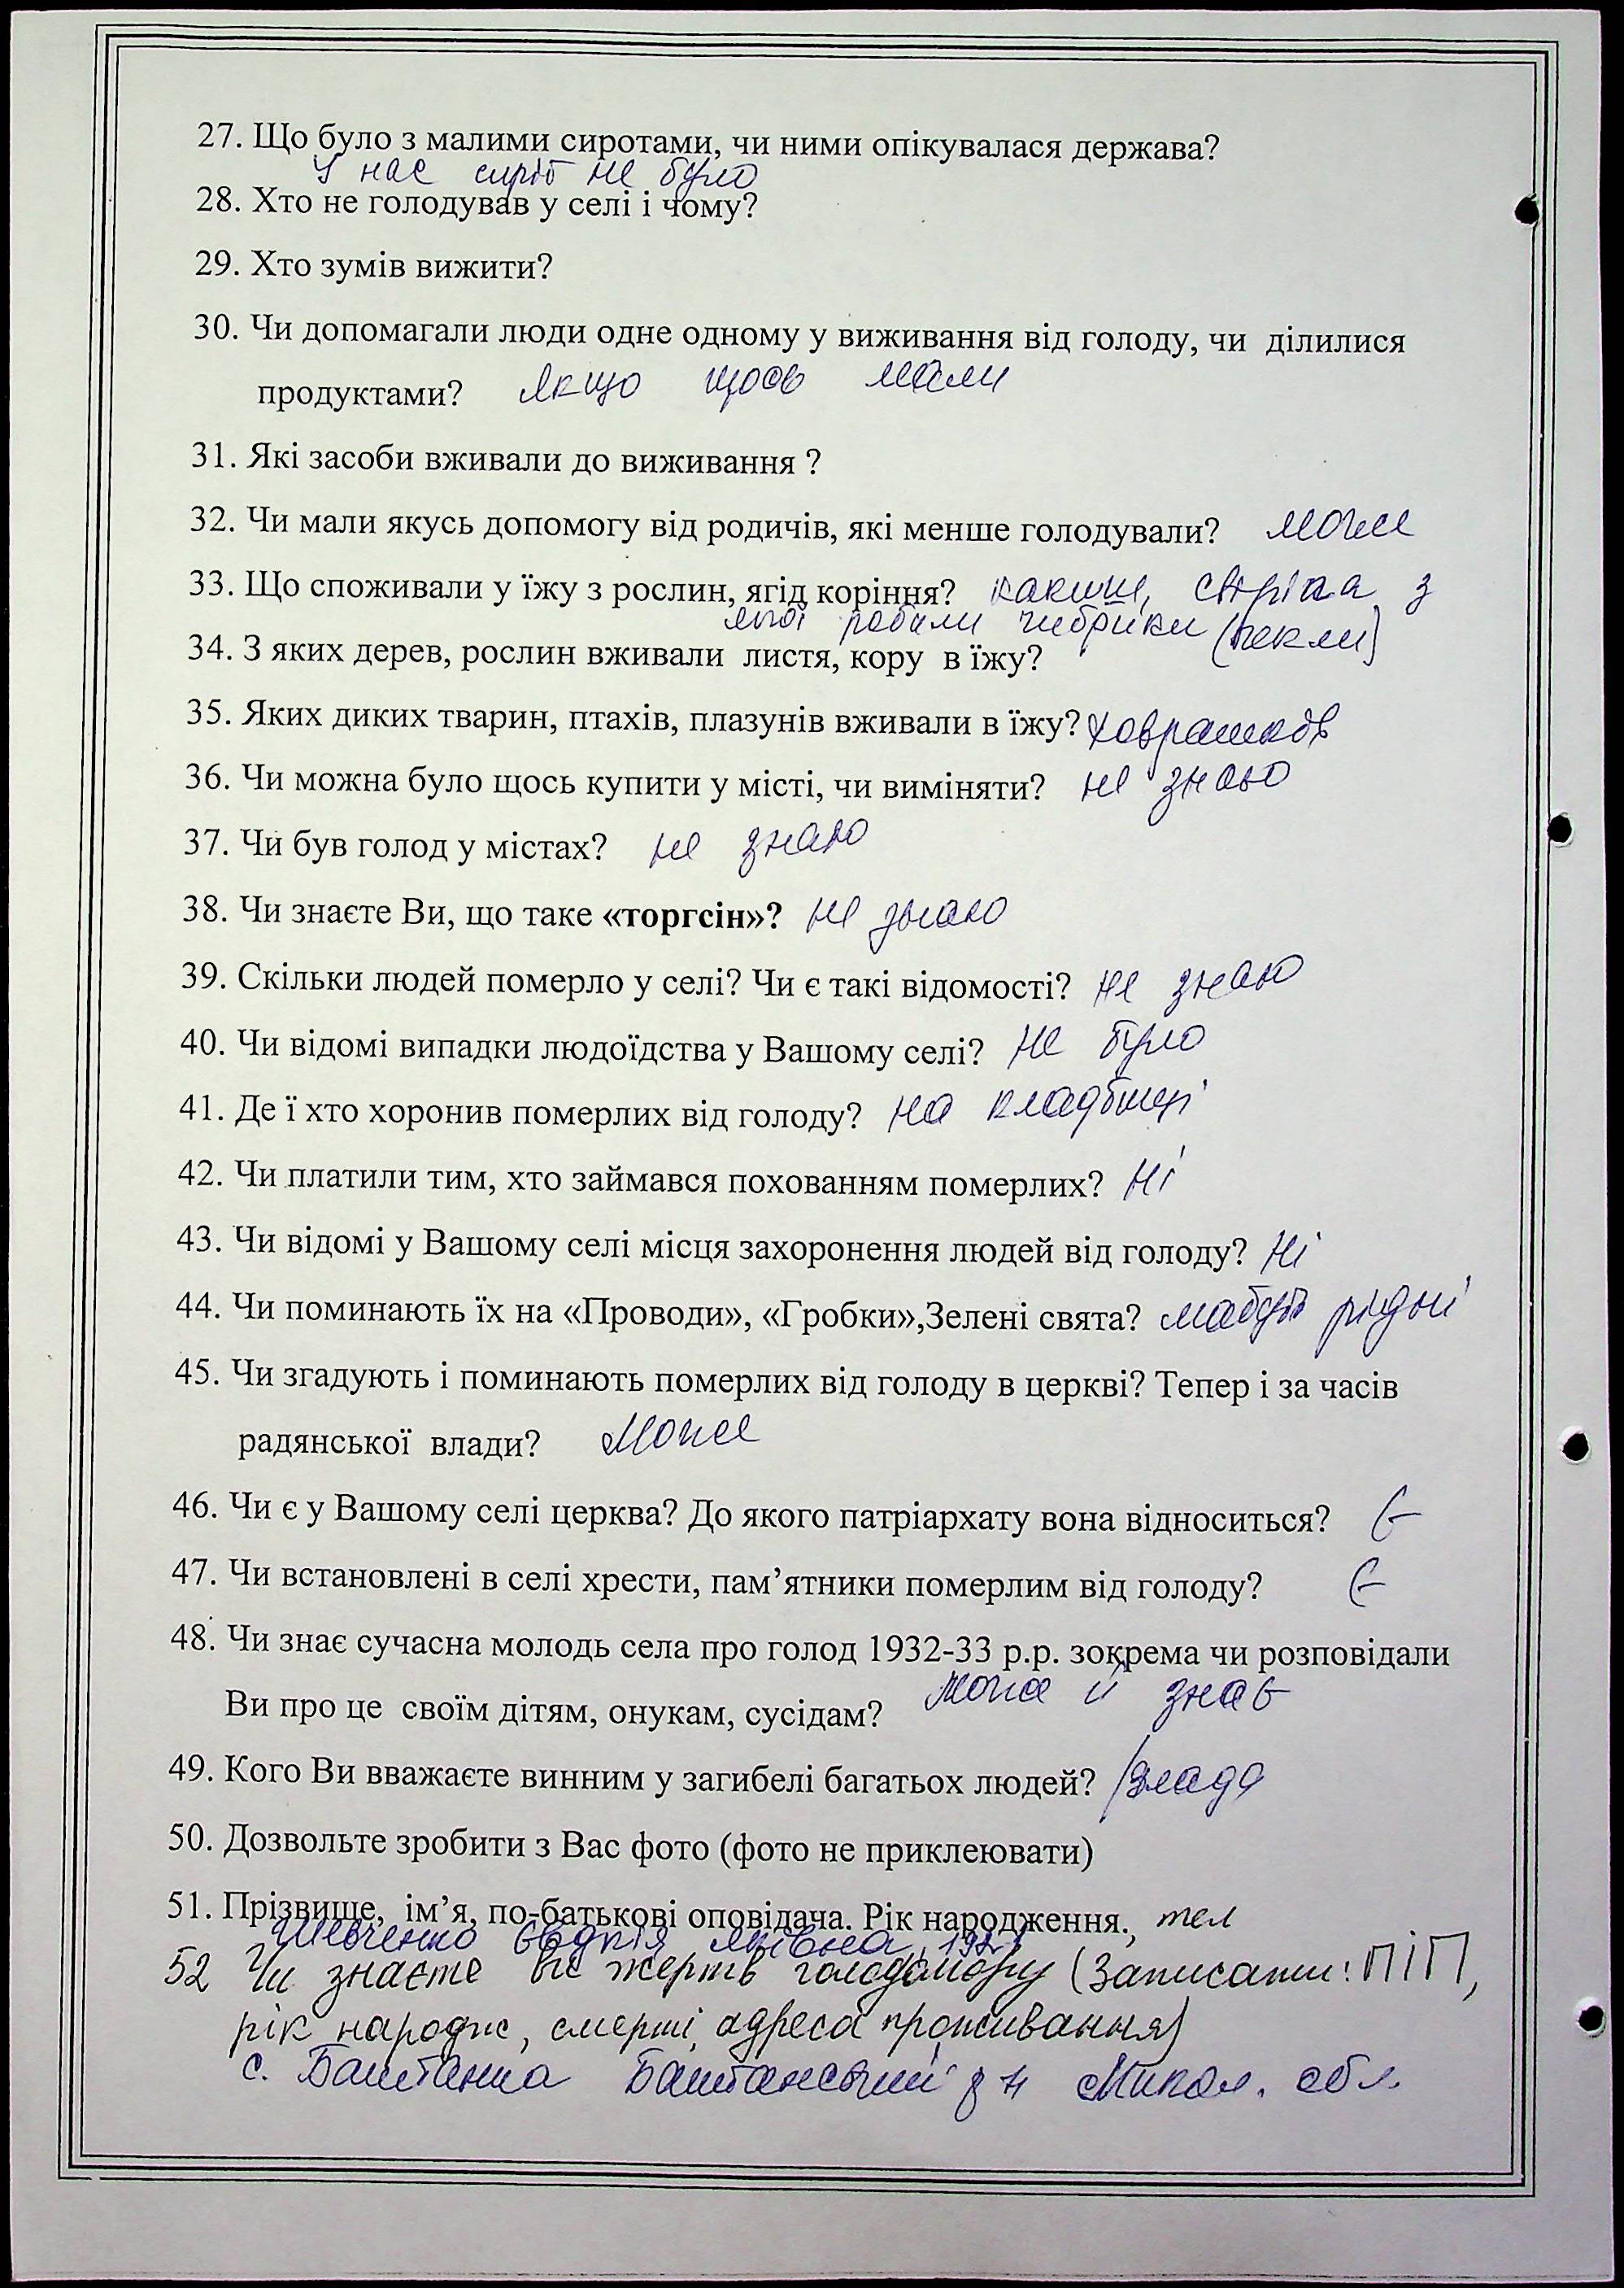 27. Що було з малими сиротами, чи ними опікувалася держава?
У нас сиріт не було
28. Хто не голодував у селі і чому?
29. Хто зумів вижити?
30. Чи допомагали люди одне одному у виживання від голоду, чи ділилися
продуктами? якщо щось мали
31. Які засоби вживали до виживання ?
32. Чи мали якусь допомогу від родичів, які менше голодували? може
33. Що споживали у їжу з рослин, ягід коріння? з
якої робили чибрики (пекли)
34. З яких дерев, рослин вживали листя, кору в їжу?
35. Яких диких тварин, птахів, плазунів вживали в їжу? ховрашків
36. Чи можна було щось купити у місті, чи виміняти? не знаю
37. Чи був голод у містах? не знаю
38. Чи знаєте Ви, що таке «торгсін»? не знаю
39. Скільки людей померло у селі? Чи є такі відомості? не знаю
40. Чи відомі випадки людоїдства у Вашому селі? не було
41. Де ї хто хоронив померлих від голоду? на кладбищі
42. Чи платили тим, хто займався похованням померлих? Ні
43. Чи відомі у Вашому селі місця захоронення людей від голоду? Ні
44. Чи поминають їх на «Проводи», «Гробки»,Зелені свята? мабуть рідні
45. Чи згадують і поминають померлих від голоду в церкві? Тепер і за часів
радянської влади? Може
46. Чи є у Вашому селі церква? До якого патріархату вона відноситься? Є
47. Чи встановлені в селі хрести, пам’ятники померлим від голоду? Є
48. Чи знає сучасна молодь села про голод 1932-33 р.р. зокрема чи розповідали
Ви про це своїм дітям, онукам, сусідам? може й знає
49. Кого Ви вважаєте винним у загибелі багатьох людей? влада
50. Дозвольте зробити з Вас фото (фото не приклеювати)
51. Прізвище, ім’я, по-батькові оповідача. Рік народження., тел
Шевченко Євдокія Яківна
52 Чи знаєте Ви жертв голодомору (Записати: ПІП,
рік народж, смерті, адреса проживання)
с. Баштанка Баштанський р н Микол. обл.